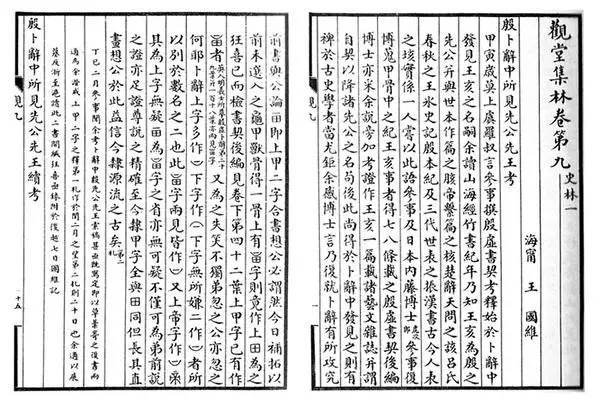 觀堂集林卷第九 史林一
海甯 王 國維
殷卜辭中所見先公先王考
甲寅歲莫上虞羅叔言參事撰殷虛書契考釋始於卜辭中
發見王亥之名嗣余讀山海經竹書紀年乃知王亥為殷之
先公并與世本作篇之胲帝繫篇之核楚辭天問之該呂氏
春秋之王冰史記殷本紀及三代世表之振漢書古今人表
之垓實係一人嘗以此語參事及日本內藤博士虎次郎參事復
蒐甲骨中之紀王亥事者得七八條載之殷虛書契後編
博士亦采余說旁加考證作王亥一篇載諸藝文雜誌并謂
自契以降諸先公之名苟後此尚得於卜辭中發見之則有
裨於古史學者當尤鉅余感博士言乃復就卜辭有所攻究
前書與公論田即上甲二字合書想公必謂然今日補拓以
前未選入之龜甲獸骨得一骨上有字則竟作上田為之
狂喜已而檢書契後編見卷下第四十二葉上甲字已有作
者又為之失笑不獨弟忽之公亦忽之
何耶卜辭上字多作下字作下字無所嫌二作者所
以別於數名之二也此字兩見皆作又上帝字作來
其為上字無疑為字之有亦無可疑不僅可為弟前說
之證亦足證尊說之精確至今隸甲字全與田同但長其直
畫想公於此益信今隸源流之古矣第二札
丁巳二月參事聞余考卜辭中殷先公先王索稿甚亟既寫定即以草稾寄之復書兩
通為余證成上甲二字之釋第一札作於閏二月之望第二札則二十日也余適以展
墓反浙至滬讀此二書開緘狂喜亟錄附於後越七日國維記
殷卜辭中所見先公先王續考
觀九
十五